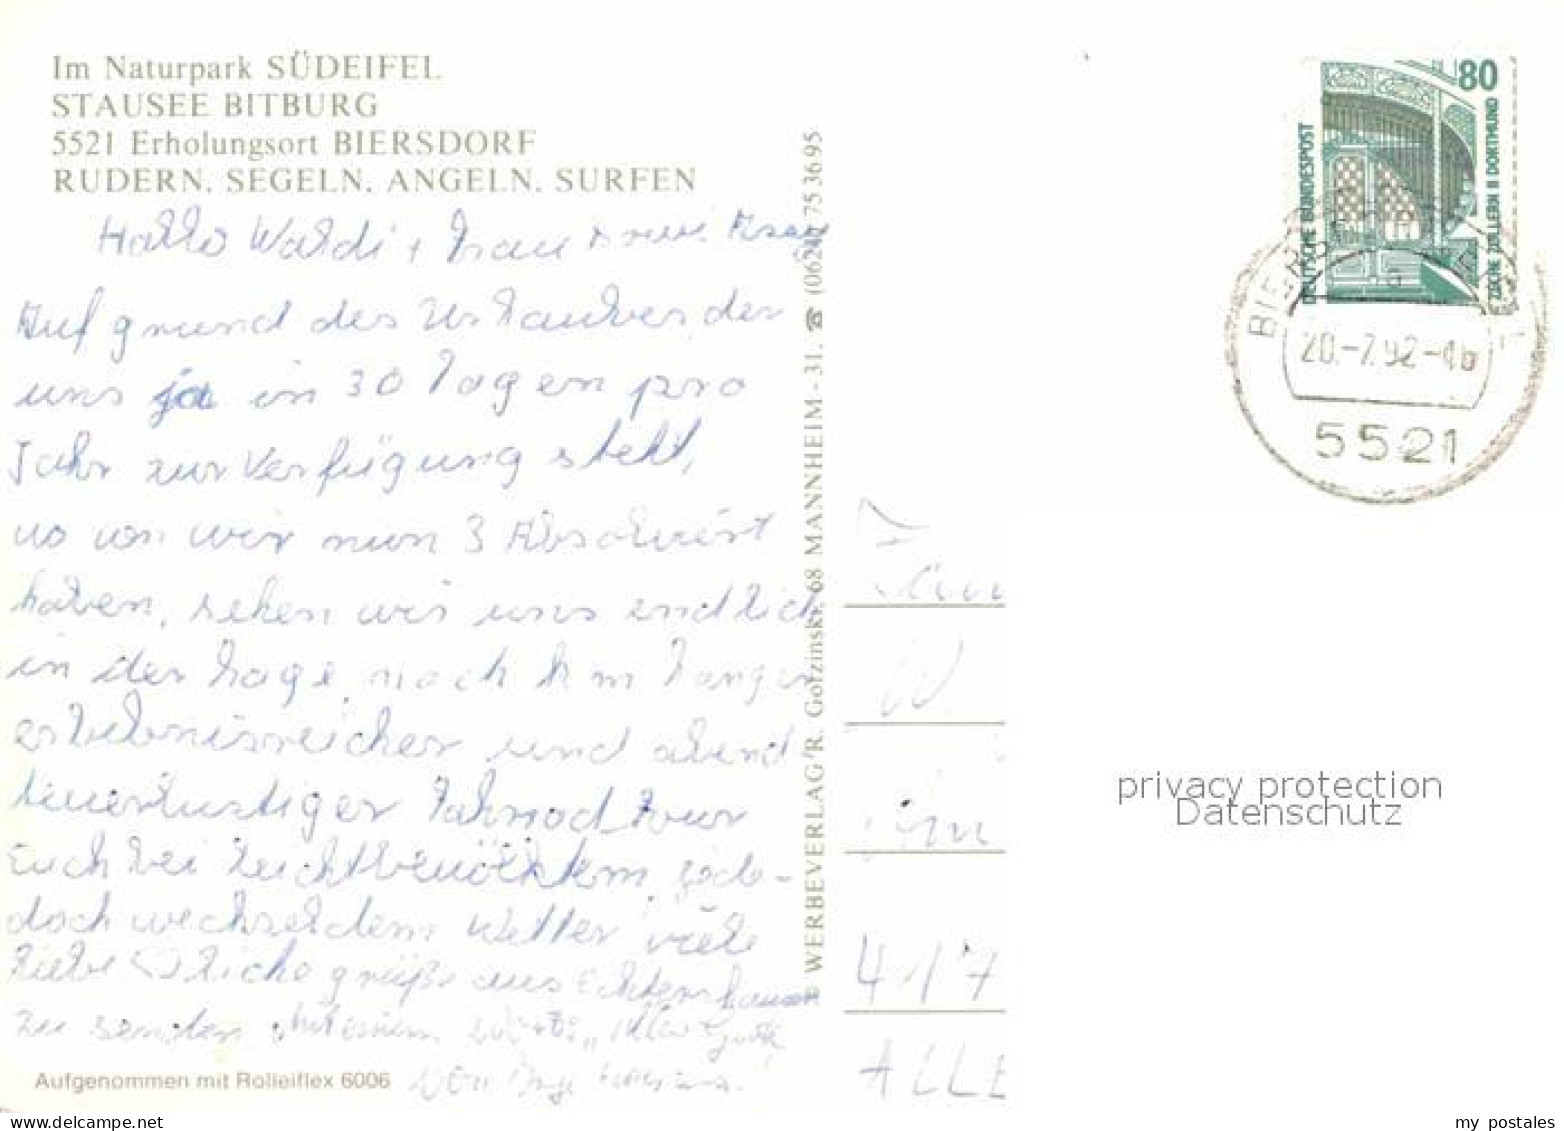 Im Naturpark SÜDEIFEL
STAUSEE BITBURG
5521 Erholungsort BIERSDORF
RUDERN, SEGELN, ANGELN, SURFEN
Hallo Waldi + Frau
Auf grund des Urlaubes, der
uns ja in 30 Tagen pro
Jahr zur Verfügung steht,
wo von wir nun 3 Absolviert
haben, sehen wir uns endlich
in der Lage, nach km langer
erlebnisreicher und abend
teuerlustiger Fahrrad Tour
Euch bei leichtbewölktem, jedo-
doch wechselden Wetter viele
liebe ♡ liche grüße aus
zu senden
Aufgenommen mit Rolleiflex 6006
© WERBEVERLAG R. Gotzinski, 68 MANNHEIM - 31, ☎ (0621) 75 36 95
80
DEUTSCHE BUNDESPOST
ZECHE ZOLLERN II DORTMUND
20.-7.92-
5521
privacy protection
Datenschutz
my postales